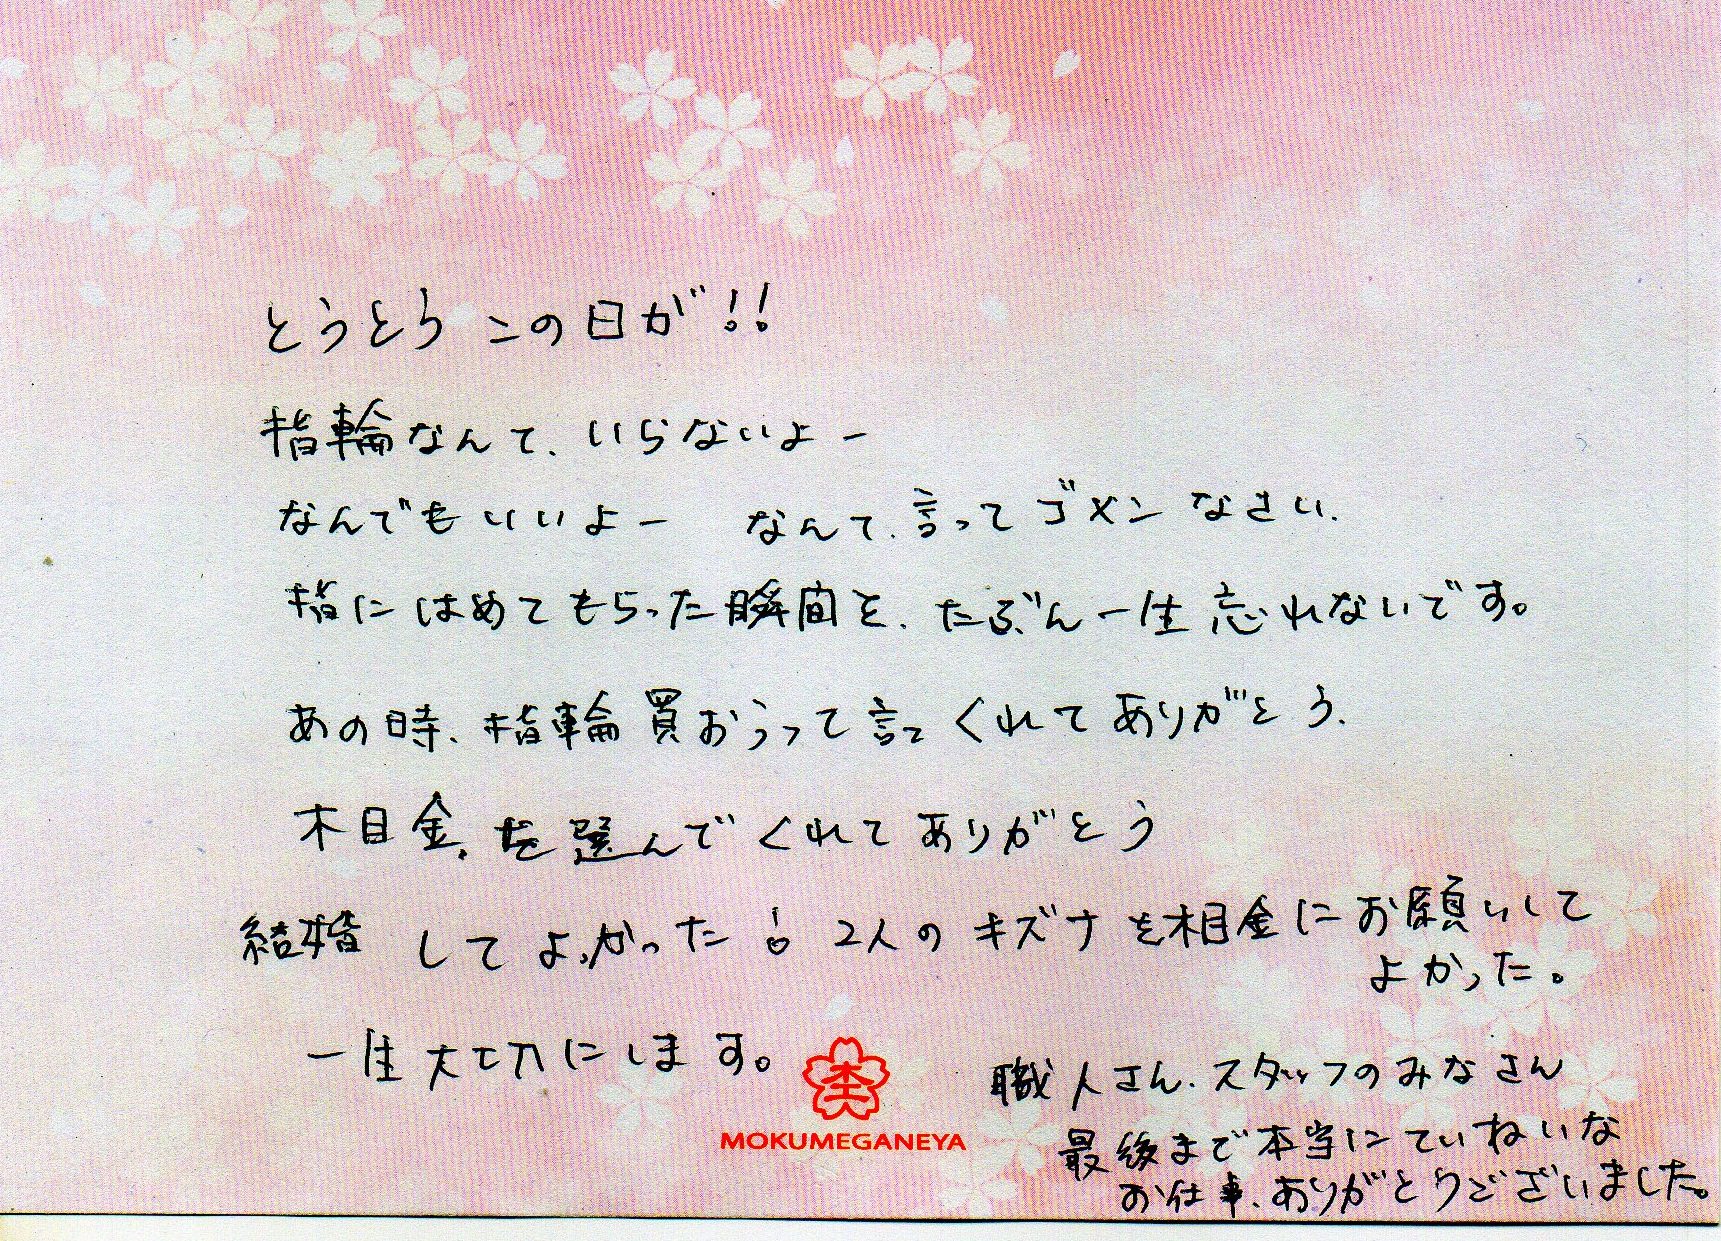 とうとうこの日が!!
指輪なんて、いらないよー
なんでもいいよー なんて、言ってゴメンなさい、
指にはめてもらった瞬間を、たぶん一生忘れないです。
あの時、指輪買おうって言ってくれてありがとう、
木目金、を選んでくれてありがとう
結婚してよかった! 2人のキズナを相金にお願いして
よかった。
一生大切にします。
MOKUMEGANEYA
職人さん、スタッフのみなさん
最後まで本当にていねいな
お仕事、ありがとうございました。